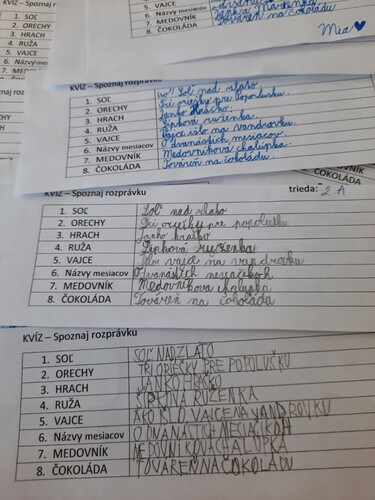 5. VAJCE
6. Názvy mesiacov
7. MEDOVNÍK
8. ČOKOLÁDA
Továreň na čokoládu
Mia
KVÍZ – Spoznaj rozprávku
1. SOĽ Soľ nad zlato
2. ORECHY Tri oriešky pre Popolušku.
3. HRACH Janko Hraško.
4. RUŽA Šípková ruženka.
5. VAJCE Vajce išlo na vandrovku.
6. Názvy mesiacov O dvanástich mesiacov.
7. MEDOVNÍK Medovníková chalúpka.
8. ČOKOLÁDA Továreň na čokoládu.
KVÍZ – Spoznaj rozprávku trieda: 2 A
1. SOĽ Soľ nad zlato
2. ORECHY Tri oriešky pre popolušku
3. HRACH Janko hraško
4. RUŽA Šípková ruženka
5. VAJCE vajce na vandrovku
6. Názvy mesiacov O dvanástich mesiačikoch
7. MEDOVNÍK Medovníkova chalupka
8. ČOKOLÁDA Továreň na čokoládu
KVÍZ – Spoznaj rozprávku
1. SOĽ SOĽ NAD ZLATO
2. ORECHY TRI ORIEŠKY PRE POPOLUŠKU
3. HRACH JANKO HRAŠKO
4. RUŽA ŠÍPKOVA RUŽENKA
5. VAJCE AKO IŠLO VAJCE NA VANDROVKU
6. Názvy mesiacov O DVANASTICH MESIAČIKOCH
7. MEDOVNÍK MEDOVNIKOVA CHALUPKA
8. ČOKOLÁDA TOVAREŇ NA ČOKOLADU